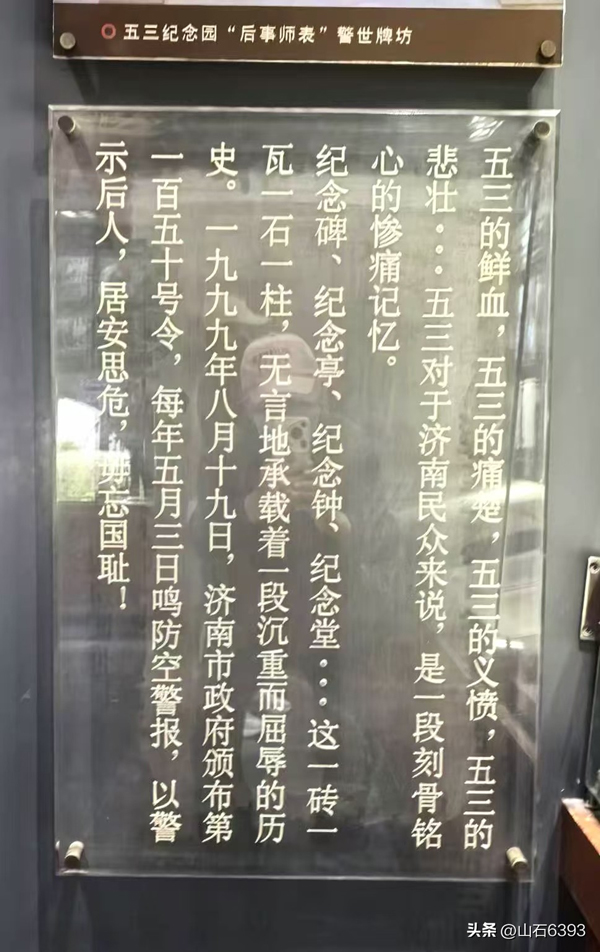 五三纪念园“后事师表”警世牌坊
五三的鲜血，五三的痛楚，五三的义愤，五三的
悲壮···五三对于济南民众来说，是一段刻骨铭
心的惨痛记忆。
纪念碑、纪念亭、纪念钟、纪念堂···这一砖一
瓦一石一柱，无言地承载着一段沉重而屈辱的历
史。一九九九年八月十九日，济南市政府颁布第
一百五十号令，每年五月三日鸣防空警报，以警
示后人，居安思危，毋忘国耻！
头条 @山石6393